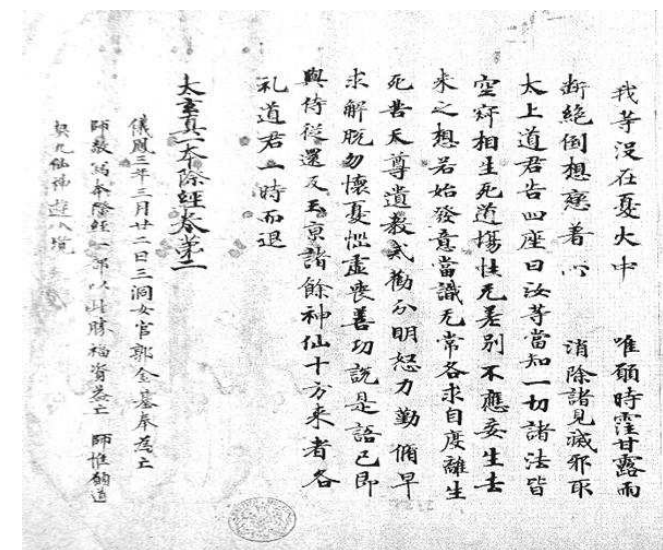 我等没在憂火中　唯願時霔甘露雨
断絶倒想戀著心　消除諸見滅邪取
太上道君告四座曰汝等當知一切諸法皆
空寂相生死道場性无差別不應妄生去
来之想若始發意當識无常各求自度離生
死苦天尊遺教式勸分明怒力勤俻早
求解脱勿懷憂惱虚喪善功説是語已即
與侍從還反玉京諸餘神仙十方来者各
礼道君一時而退
太玄真一本際經卷第二
儀鳳三年三月廿二日三洞女官郭金基奉為亡
師敬寫本際經一部以此勝福資益亡　師惟願道
契九仙神遊八境